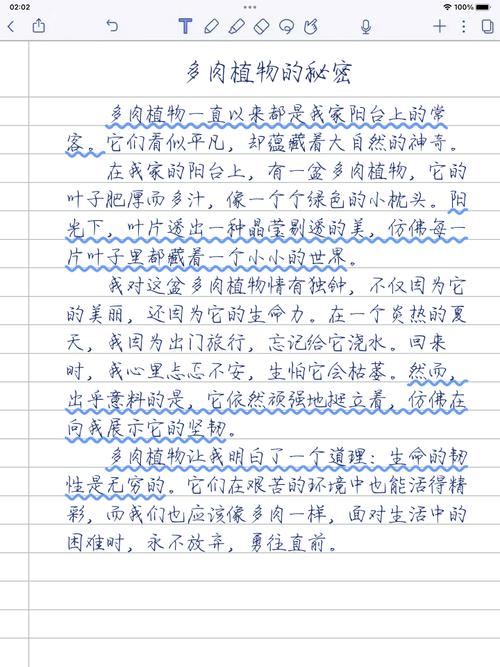 02:02
100%
多肉植物的秘密
多肉植物一直以来都是我家阳台上的常
客。它们看似平凡，却蕴藏着大自然的神奇。
在我家的阳台上，有一盆多肉植物，它的
叶子肥厚而多汁，像一个个绿色的小枕头。阳
光下，叶片透出一种晶莹剔透的美，仿佛每一
片叶子里都藏着一个小小的世界。
我对这盆多肉植物情有独钟，不仅因为它
的美丽，还因为它的生命力。在一个炎热的夏
天，我因为出门旅行，忘记给它浇水。回来
时，我心里忐忑不安，生怕它会枯萎。然而，
出乎意料的是，它依然顽强地挺立着，仿佛在
向我展示它的坚韧。
多肉植物让我明白了一个道理：生命的韧
性是无穷的。它们在艰苦的环境中也能活得精
彩，而我们也应该像多肉一样，面对生活中的
困难时，永不放弃，勇往直前。